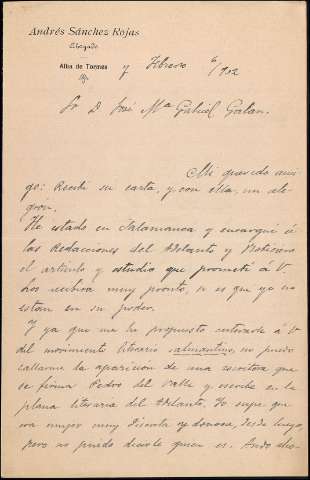 Andrés Sánchez Rojas
Abogado
Alba de Tormes
y Febrero 6/902
Sr D José Mª Gabriel Galan.
Mi querido ami-
go: Recibí su carta, y con ella, un ale-
grón.
He estado en Salamanca y encargué á
las Redacciones del Adelanto y Noticiero
el artículo y estudio que prometí á V.
Los recibira muy pronto, si es que ya no
estan en su poder.
Y ya que me he propuesto enterarle á V
del movimiento literario salmantino, no puedo
callarme la aparicion de una escritora que
se firma Pedro del Valle y escribe en la
plana literaria del Adelanto. Yo supe que
era mujer muy discreta y donosa, desde luego,
pero no puedo decirle quien es. Ando aho-